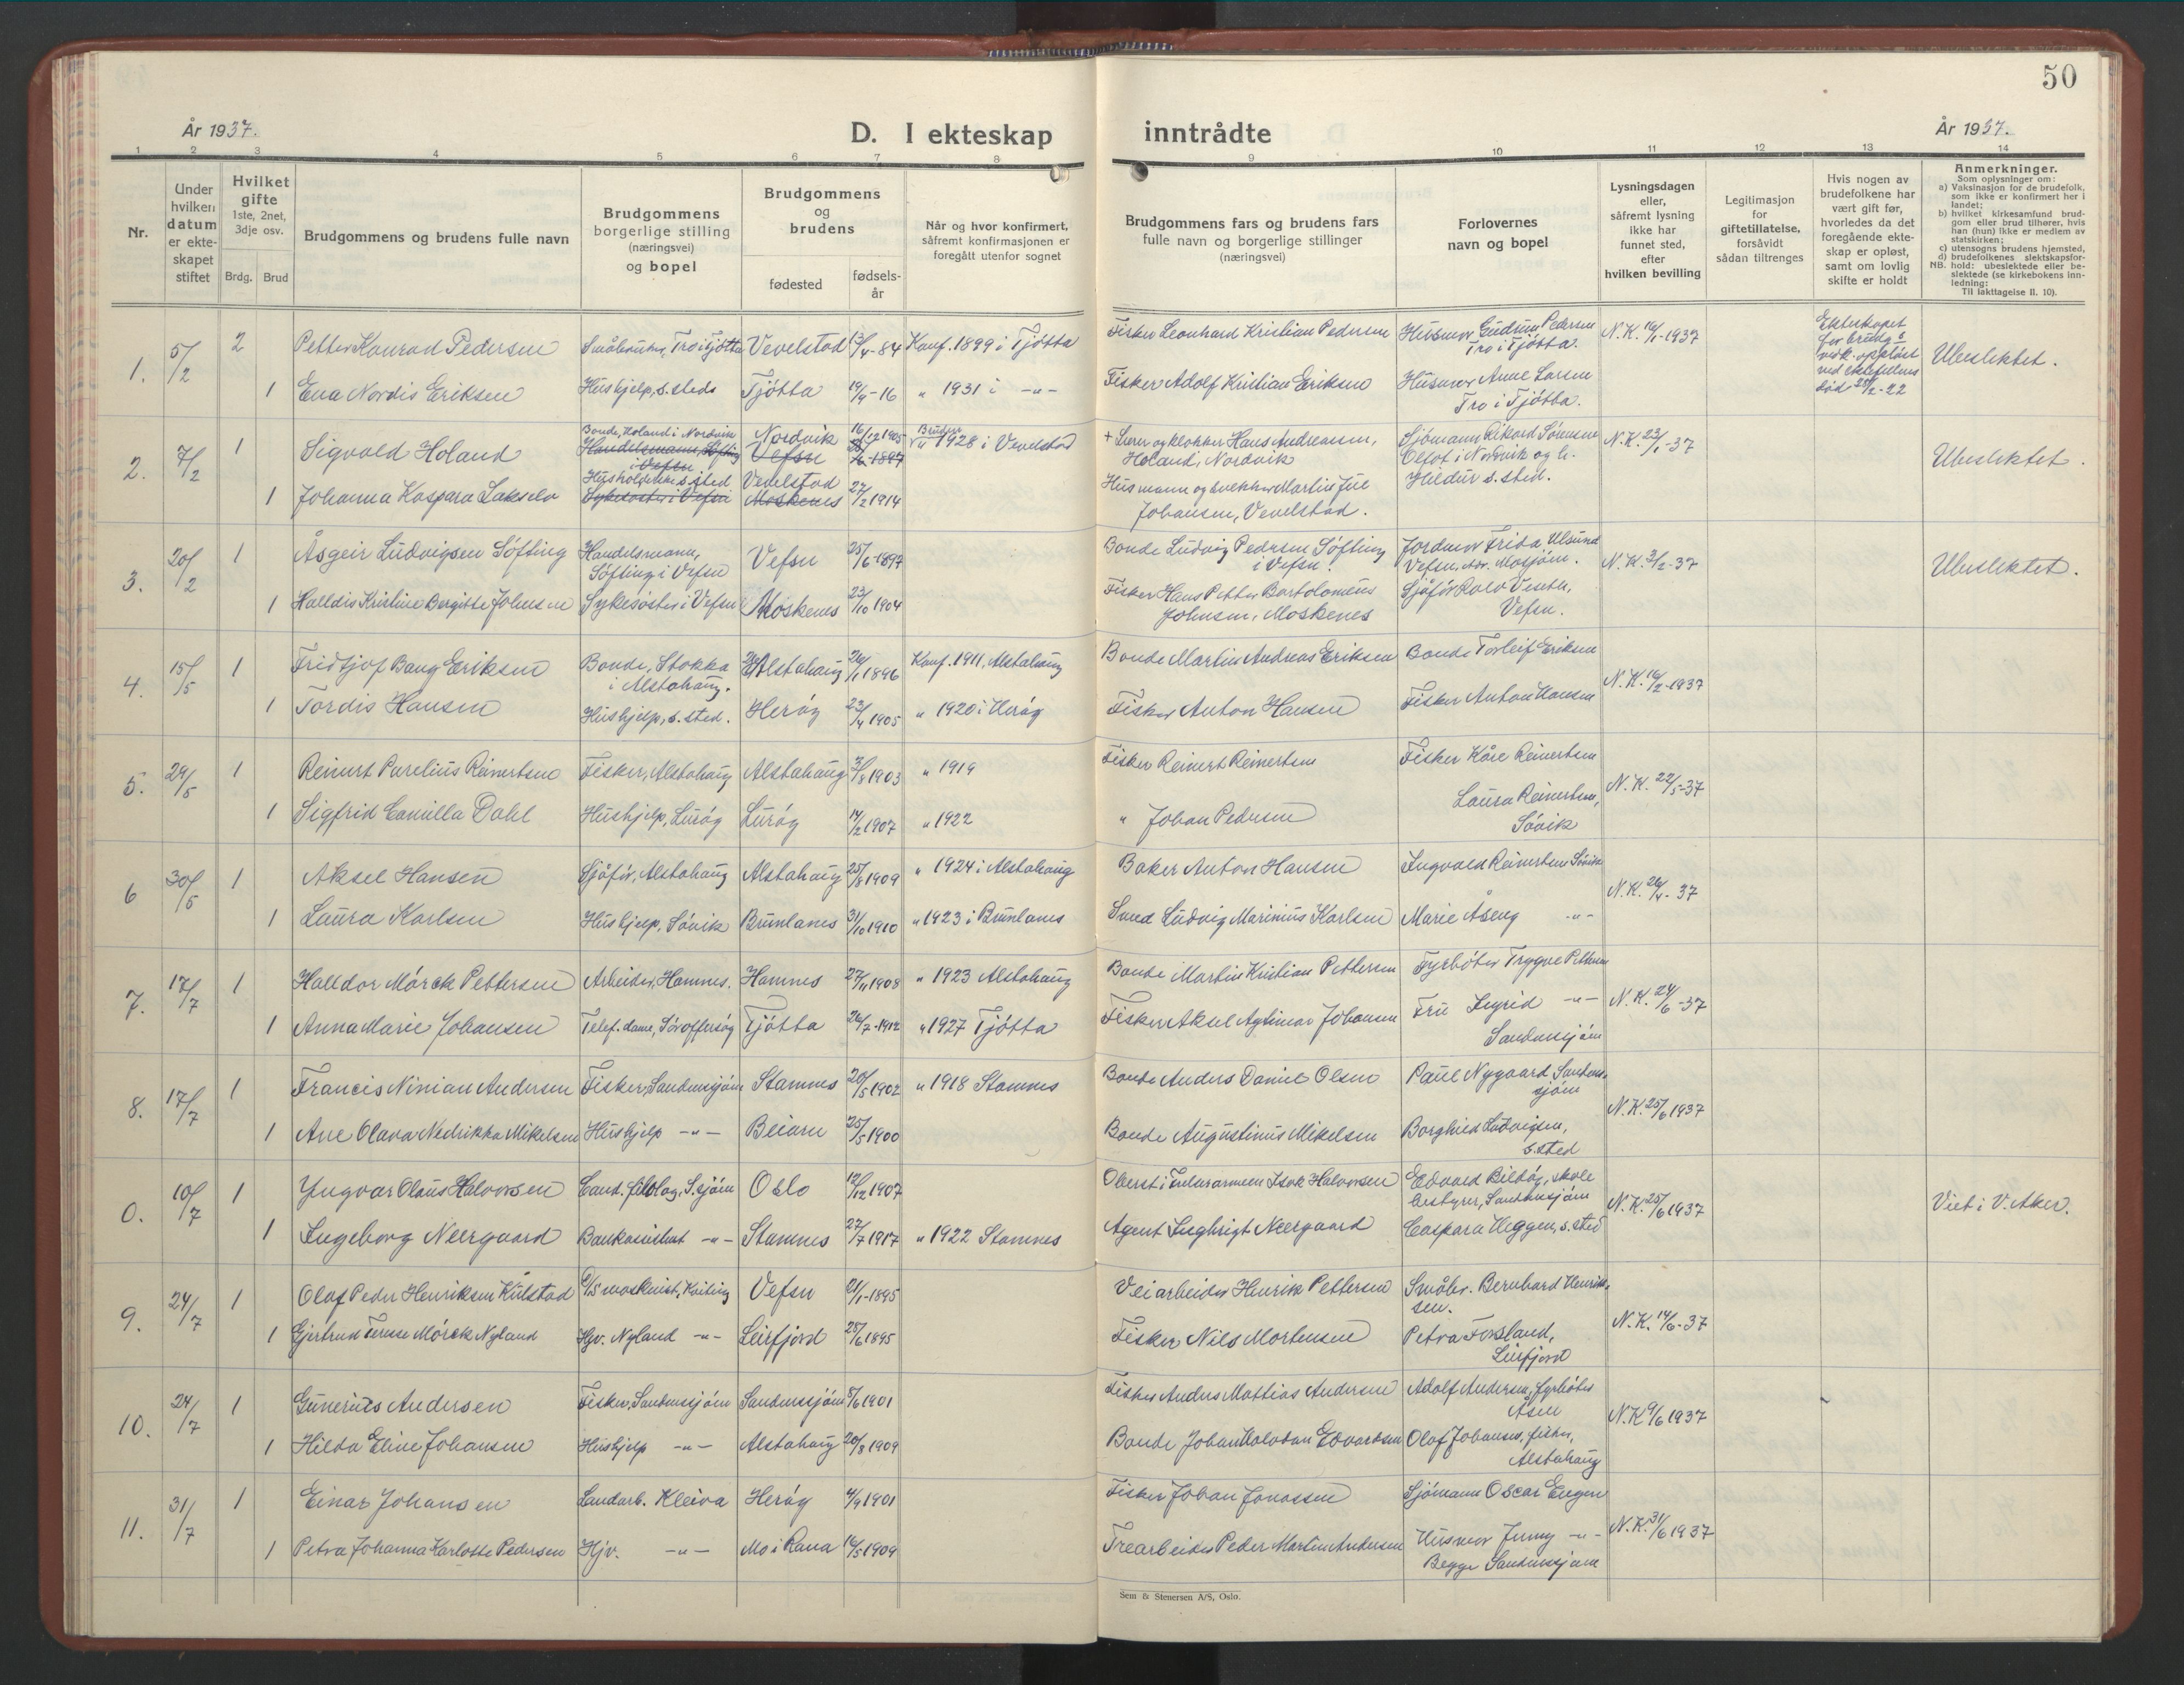 50
År 1937.
D. I ekteskap inntrådte
År 1937.
1 2 3 4 5 6 7 8 9 10 11 12 13 14
Nr.
Under hvilken datum er ekteskapet stiftet
Hvilket gifte 1ste, 2net, 3dje osv.
Brdg. Brud
Brudgommens og brudens fulle navn
Brudgommens borgerlige stilling (næringsvei) og bopel
Brudgommens og brudens
fødested
fødselsår
Når og hvor konfirmert, såfremt konfirmasjonen er foregått utenfor sognet
Brudgommens fars og brudens fars fulle navn og borgerlige stillinger (næringsvei)
Forlovernes navn og bopel
Lysningsdagen eller, såfremt lysning ikke har funnet sted, efter hvilken bevilling
Legitimasjon for giftetillatelse, forsåvidt sådan tiltrenges
Hvis nogen av brudefolkene har vært gift før, hvorledes da det foregående ekteskap er opløst, samt om lovlig skifte er holdt
Anmerkninger.
Som oplysninger om:
a) Vaksinasjon for de brudefolk, som ikke er konfirmert her i landet;
b) hvilket kirkesamfund brudgom eller brud tilhører, hvis han (hun) ikke er medlem av statskirken;
c) utensogns brudens hjemsted,
d) brudefolkenes slektskapsforhold: ubeslektede eller beslektede (se kirkebokens innledning:
NB.
Til iakttagelse II. 10).
1. 5/2 2 Petter Konrad Pedersen Småbruker, Tro i Tjøtta Vevelstad /4-84 Konf. 1899 i Tjøtta Fisker Leonhard Kristian Pedersen Husmor Gudrun Pedersen Tro i Tjøtta. N.K. 16/1-1937 Ekteskapet for brudg. opløst ved død 22 Ubeslektet.
1 Ena Nordis Eriksen Hushjelp, s. steds Tjøtta 19/4-16 " 1931 i -"- Fisker Adolf Kristian Eriksen Husmor Anne Larsen Tro i Tjøtta.
2. 7/2 1 Sigvald Holand Bonde, Holand i Nordvik Handelsmann, Søfting i Vefsn Nordvik Vefsn 16/12 1905 25/6-1897 Bruden " 1928 i Vevelstad + Lærer og klokker Hans Andreassen, Holand, Nordvik Sjømann Rikard Sørensen i Nordvik og h. N.K. 23/1-37 Ubeslektet.
1 Johanna Kaspara Lakselv Husholderske s. sted Sykesøster i Vefsn Vevelstad Moskenes 27/2 1914 Husmann og Martin Juel Johansen, Vevelstad. Hildur s. sted.
3. 20/2 1 Åsgeir Ludvigsen Søfting Handelsmann, Søfting i Vefsn Vefsn 25/6-1897 Bonde Ludvig Pedersen Søfting i Vefsn. Jordmor Frida Ulsund Vefsn, adr. Mosjøen. N.K. 3/2-37 Ubeslektet.
1 Halldis Kristine Bergitte Johnsen Sykesøster i Vefsn Moskenes 23/10 1904 Fisker Hans Petter Bartolomeus Johnsen, Moskenes Sjåfør Rolv Veseth, Vefsn.
4. 15/5 1 Fridtjof Bang Eriksen Bonde, Stokka i Alstahaug. Alstahaug 26/1 1896 Konf. 1911, Alstahaug Bonde Martin Andreas Eriksen Bonde Torleif Eriksen N.K. 16/2-1937
1 Tordis Hansen Hushjelp, s. sted. Herøy 23/4 1905 " 1920 i Herøy Fisker Anton Hansen Fisker Anton Hansen
5. 29/5 1 Reinert Parelius Reinertsen Fisker, Alstahaug Alstahaug 3/8 1903 " 1919 Fisker Reinert Reinertsen Fisker Kåre Reinertsen N.K. 22/5-37
1 Sigfrid Camilla Dahl Hushjelp, Lurøy Lurøy 14/2 1907 " 1922 " Johan Pedersen Laura Reinertsen, Søvik
6 30/5 1 Aksel Hansen Sjåfør, Alstahaug Alstahaug 25/8 1909 " 1924 i Alstahaug Baker Anton Hansen Ingvald Reinertsen Søvik N.K. 26/4-37
1 Laura Karlsen Hushjelp, Søvik Brunlanes 31/10 1910 " 1923 i Brunlanes Smed Ludvig Marinius Karlsen Marie Åseng -"-
7. 17/7 1 Halldor Mørck Pettersen Arbeider, Hamnes. Hamnes 27/11 1908 " 1923 Alstahaug Bonde Martin Kristian Pettersen Fyrbøter Trygve Pettersen N.K. 24/6-37
1 Anna Marie Johansen Telef.dame, Sørofferøy Tjøtta 26/7-1912 " 1927 Tjøtta Fisker Aksel Agtinar Johansen Fru Ingrid -"- Sandnessjøen
8. 17/7 1 Francis Ninian Andersen Fisker, Sandnessjøen Stamnes 20/5 1902 " 1918 Stamnes Bonde Anders Daniel Olsen Paul Nygaard Sandnessjøen N.K. 25/6 1937
1 Ane Olava Nedrikka Mikelsen Hushjelp -"- Beiarn 25/5 1900 Bonde Augustinus Mikelsen Borghild Ludvigsen, s. sted
0. 10/7 1 Yngvar Olaus Halvorsen Cand. filolog, S.sjøen Oslo 12/12 1907 Oberst i Frelsesarmeen Isak Halvorsen Edvard Bildøy, skolebestyrer, Sandnessjøen N.K. 25/6 1937 Viet i V. Aker.
1 Ingeborg Neergaard Bankassistent -"- Stamnes 27/7 1917 " 1922 Stamnes Agent Ingbrigt Neergaard Caspara Heggen, s. sted
9. 24/7 1 Olaf Peder Henriksen Kulstad D/S maskinist, Vefsn 21/1-1895 Veiarbeider Henrik Pettersen Småbr. Bernhard Henriksen. N.K. 14/6-37
1 Gjertrud Terese Mørck Nyland Hjv. Nyland -"- Leirfjord 25/6 1895 Fisker Nils Mortensen Petra Forsland, Leirfjord
10. 24/7 1 Gunerius Andersen Fisker, Sandnessjøen Sandnessjøen 5/6 1901 Fisker Anders Mathias Andersen Adolf Andersen, fyrbøter Åsen N.K. 9/6 1937
1 Hilda Eline Johansen Hushjelp -"- Alstahaug 20/8 1909 Bonde Johan Halvdan Edvardsen Olaf Johansen, fisker, Alstahaug
11. 31/7 1 Einar Johansen Landarb. Kleiva Herøy 4/9 1901 Fisker Johan Jonassen Sjømann Oscar Engen N.K. 31/6 1937
1 Petra Johanna Karlotte Pedersen Hjv. -"- Mo i Rana 16/5 1909 Trearbeider Peder Martin Andersen Husmor Jenny -"- Begge Sandnessjøen
Sem & Stenersen A/S, Oslo.